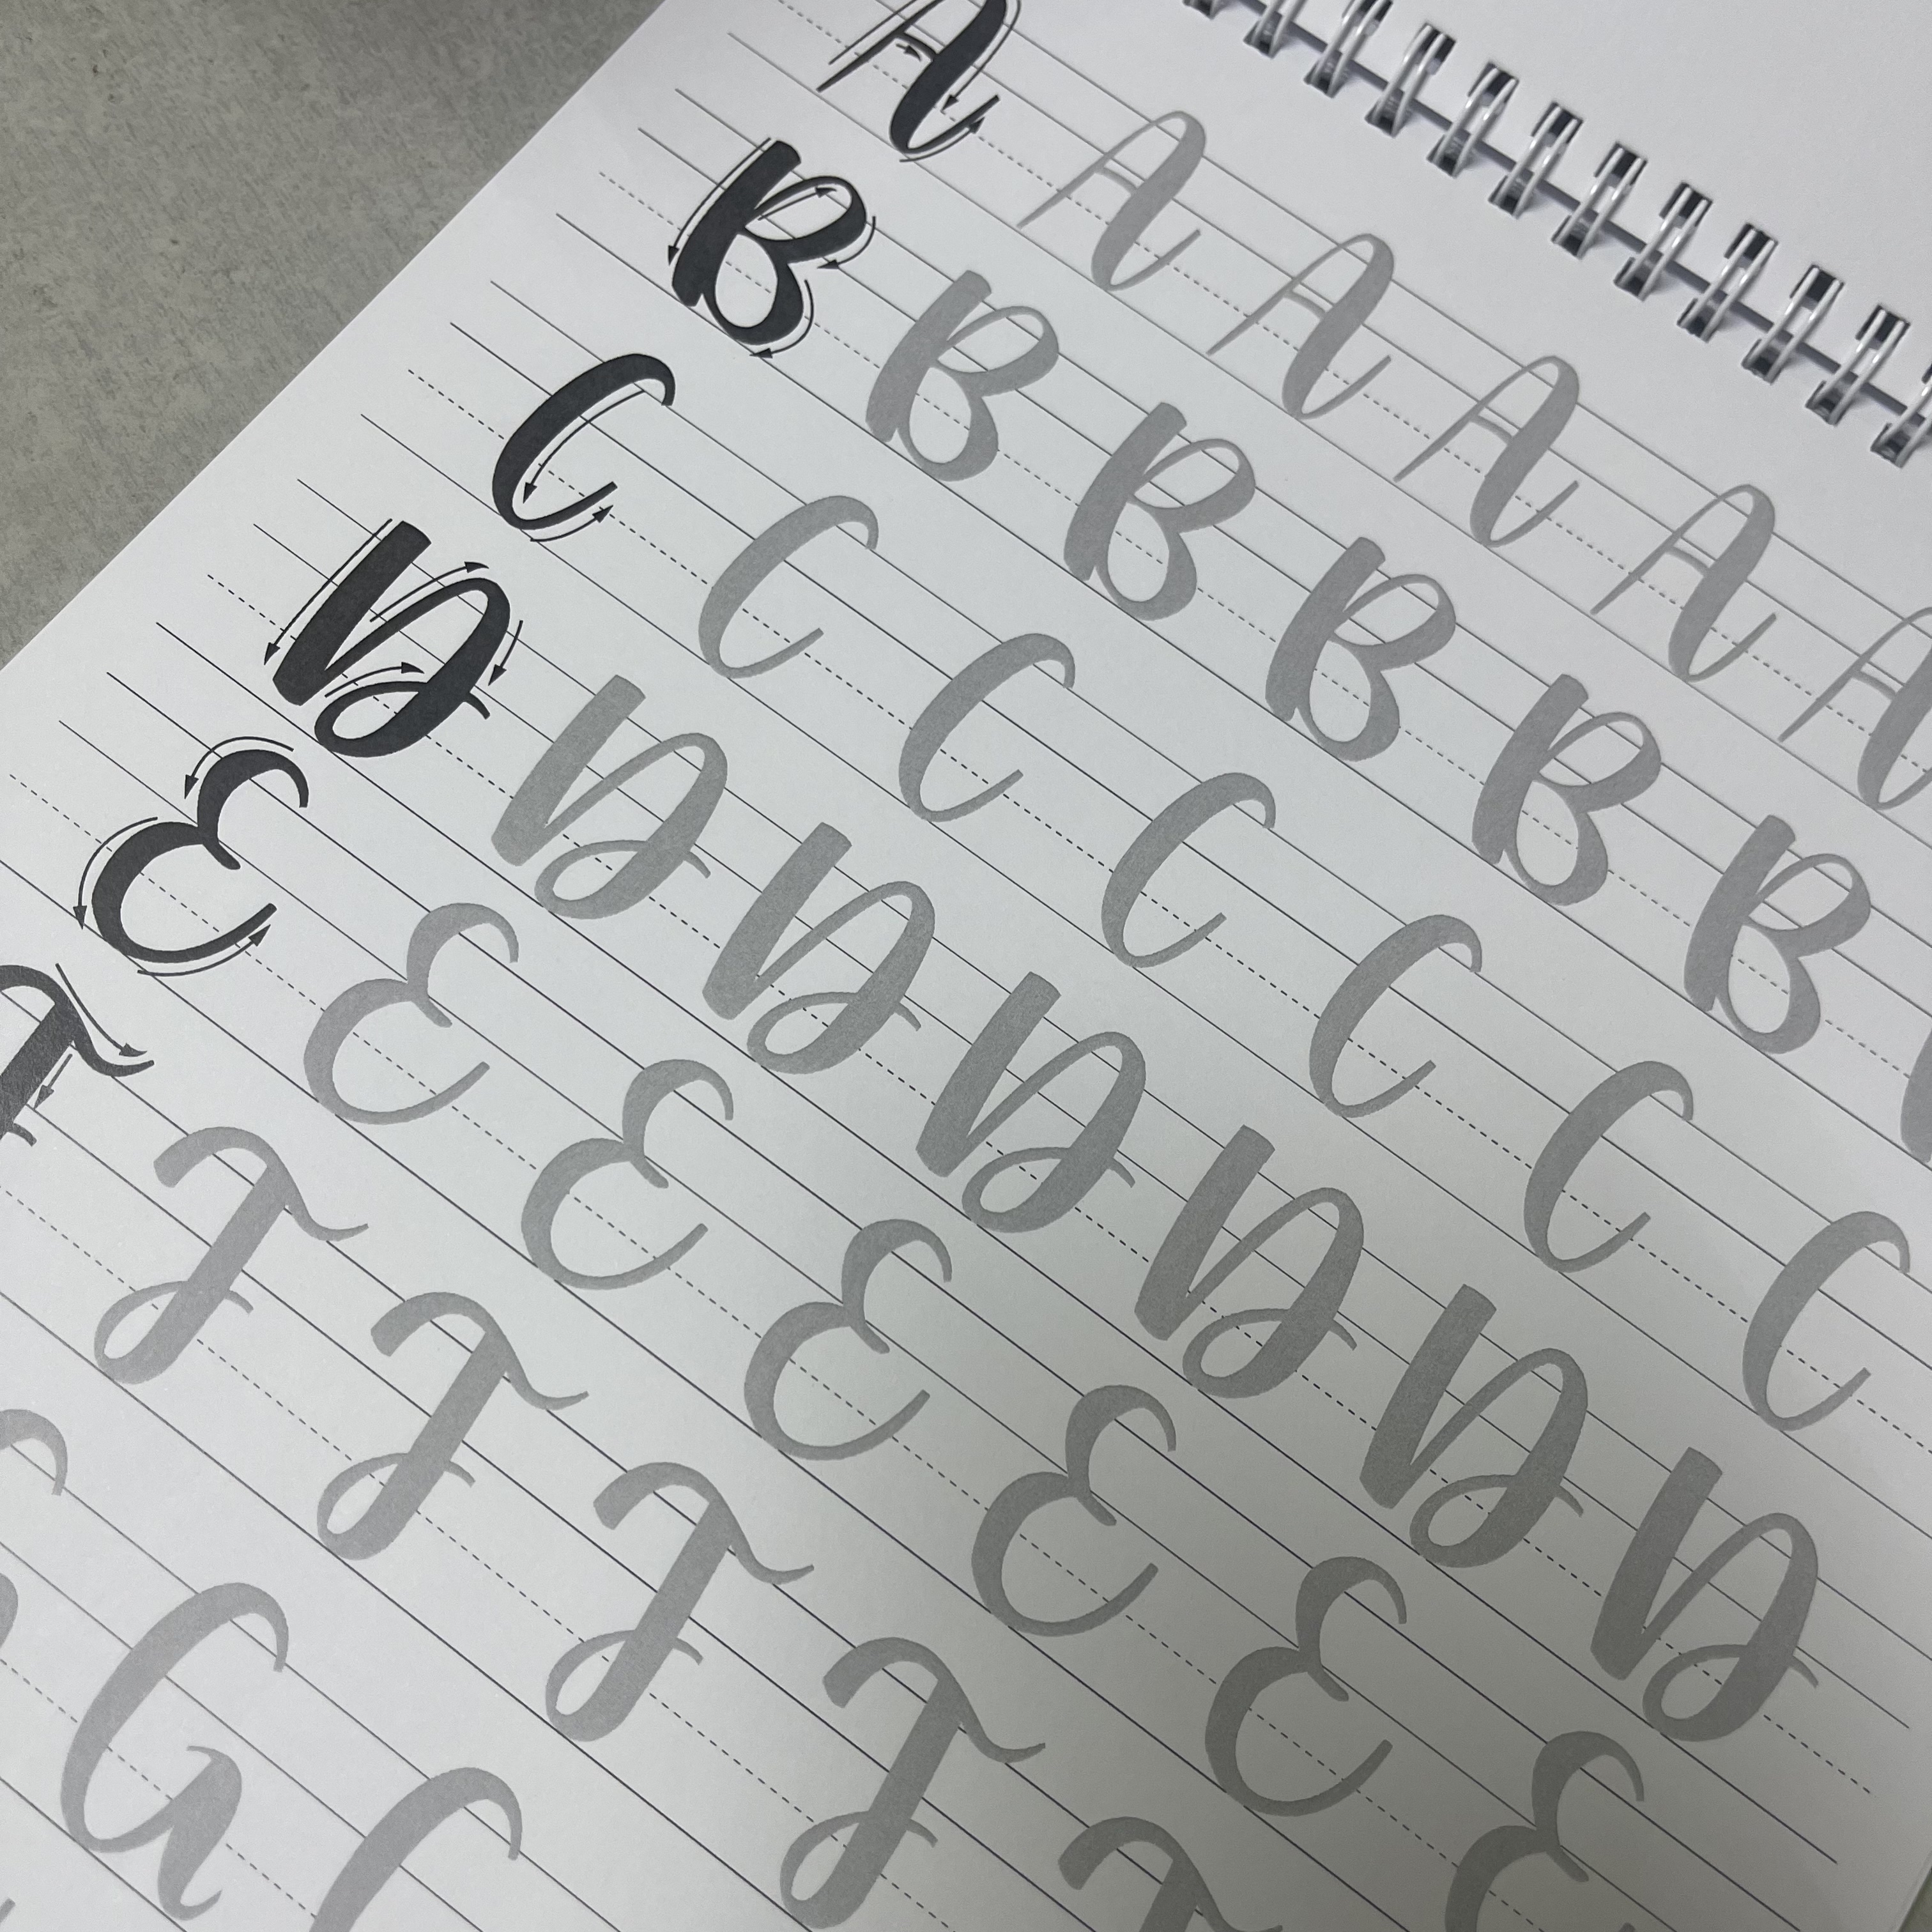 A A A A A A
B B B B B B
C C C C C C C
D D D D D D D
E E E E E E E
F F F F F F
G G